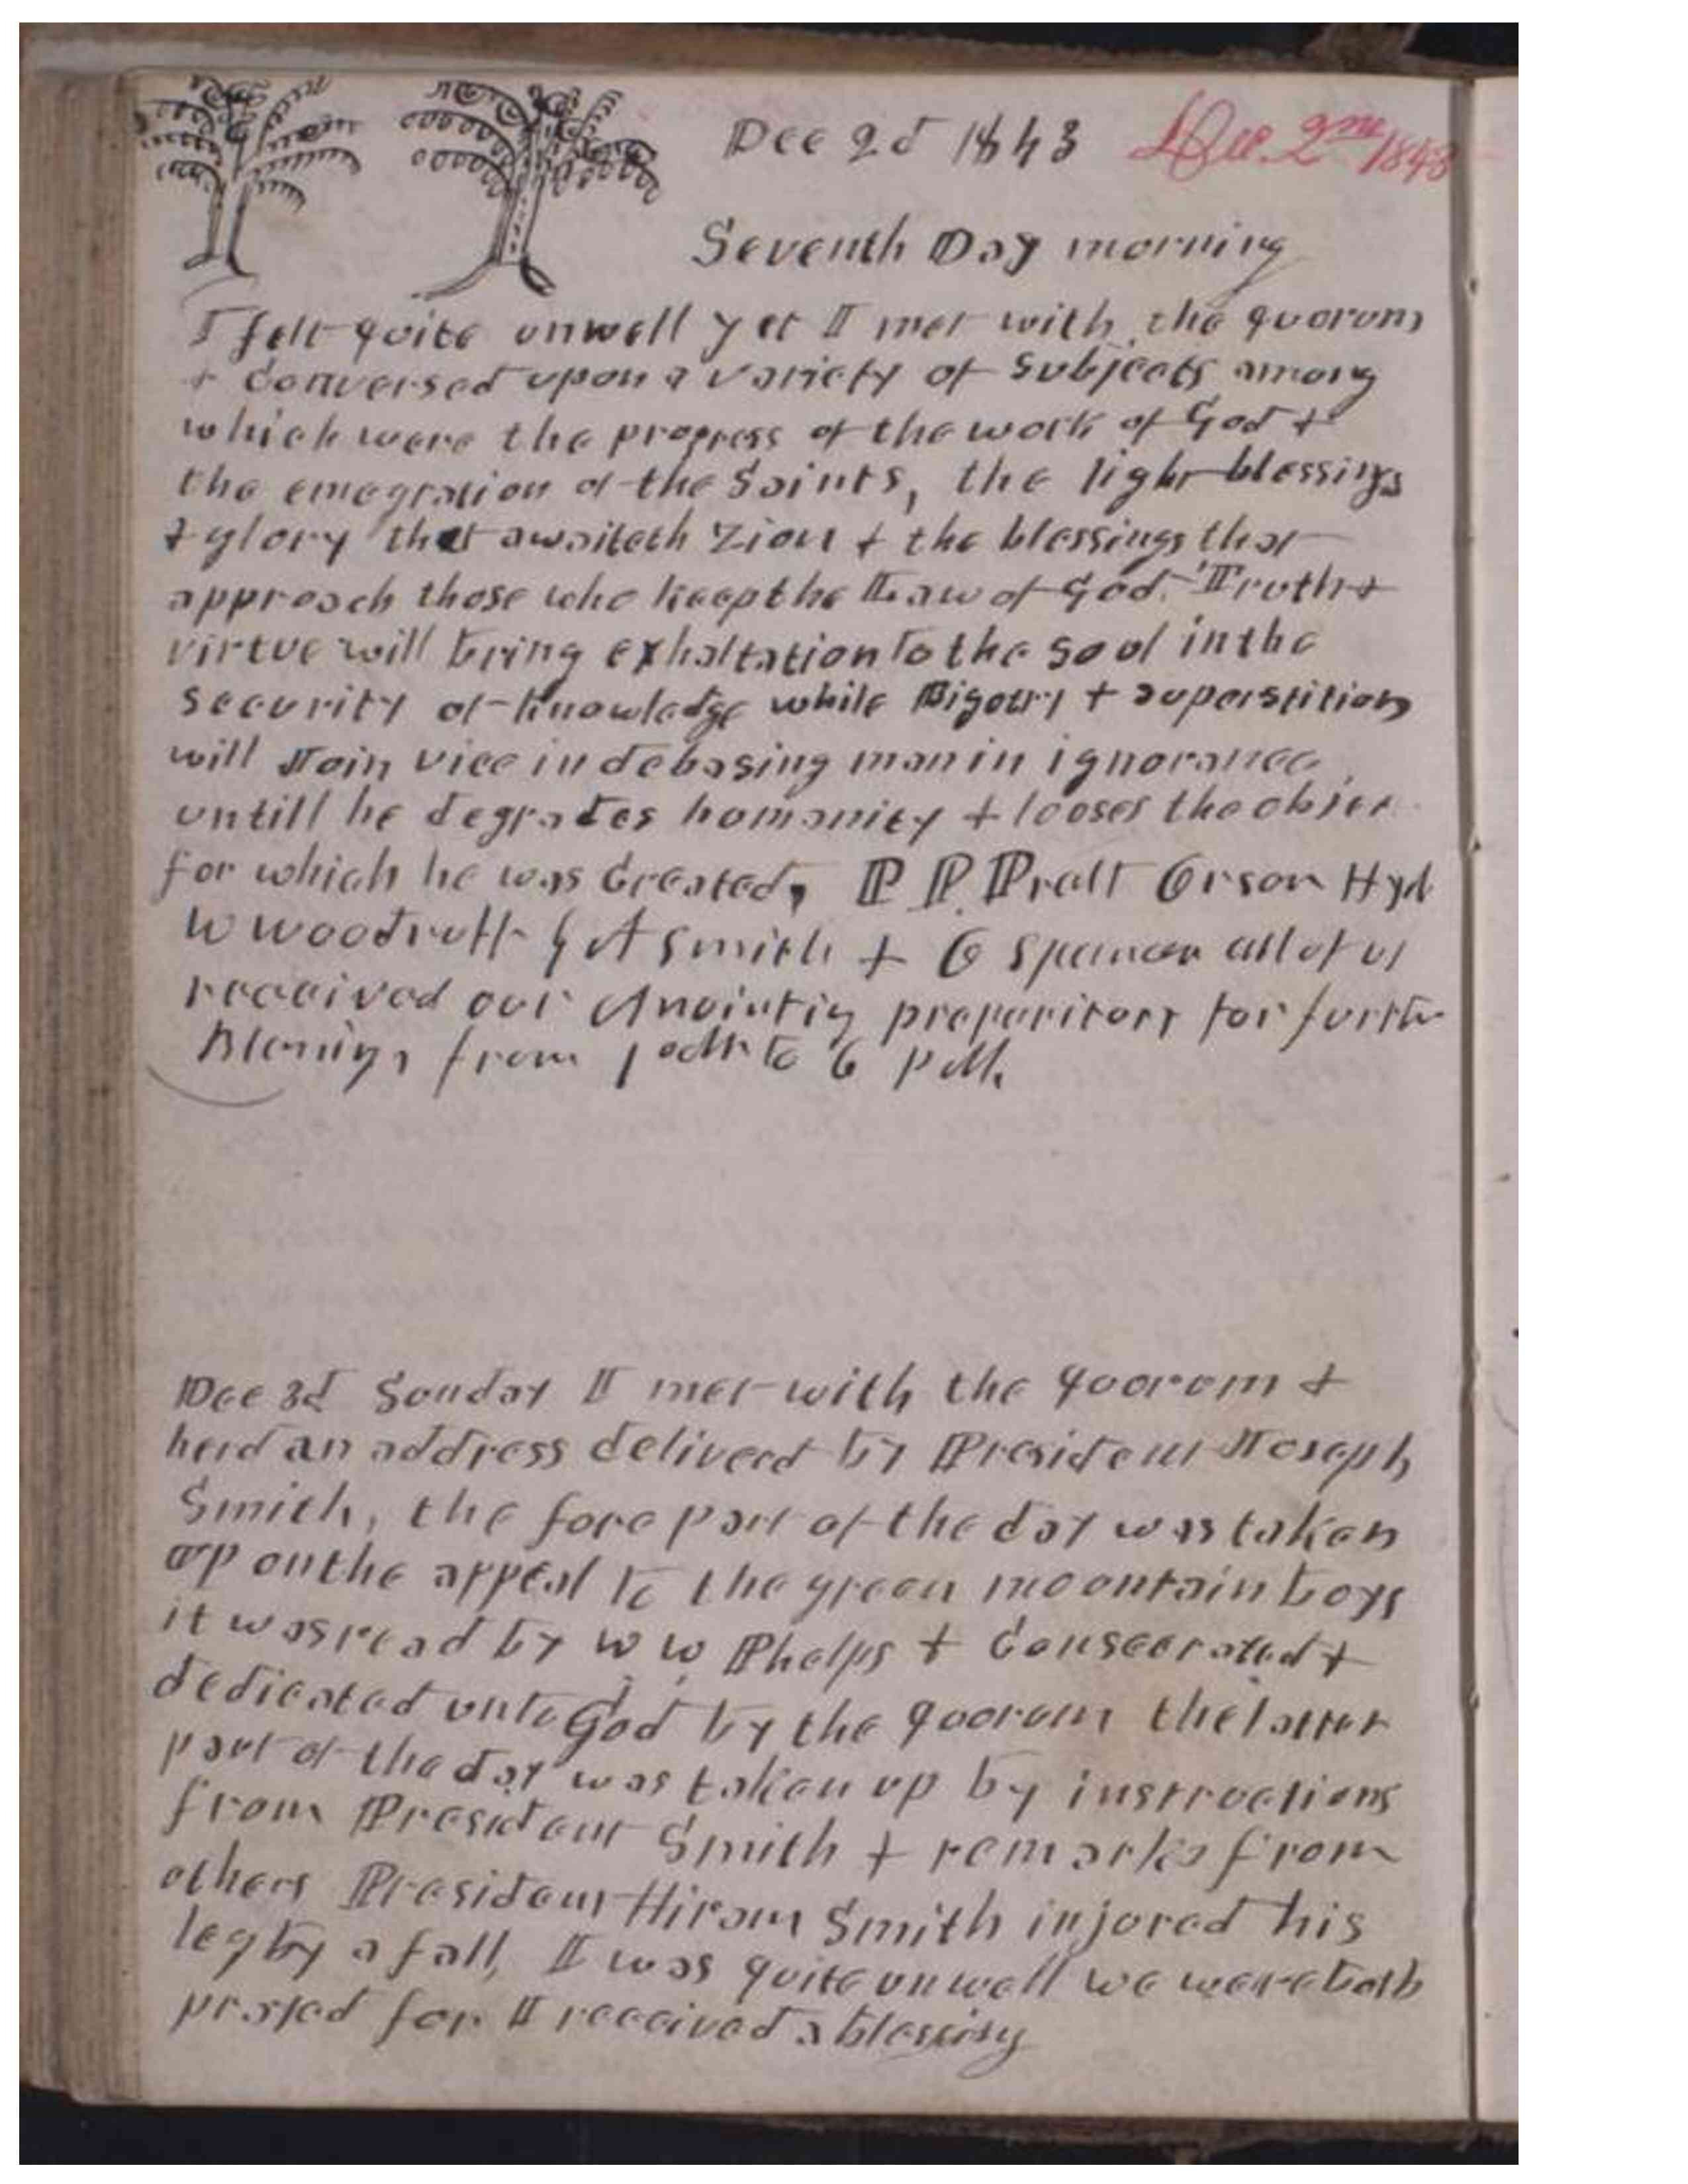 Dec 2d 1843 Dec. 2nd 1843
Seventh Day morning
I felt quite unwell yet I met with the quorum
+ Conversed upon a variety of Subjects among
which were the progress of the work of God +
the emegration of the Saints, the light blessings
+ glory that awaiteth Zion + the blessings that
approach those who keep the Law of God. Truth +
virtue will bring exhaltation to the soul in the
security of knowledge while Bigotry + superstition
will Join vice in debasing man in ignorance
untill he degrades humanity + looses the object
for which he was Created, P P. Pratt Orson Hyd
W Woodruff G A Smith + O Spencer all of us
received our Anointig preparitory for furthr
Blessings from 1 oclk to 6 PM.
Dec 3d Sunday I met with the quorum +
herd an address deliverd by President Joseph
Smith, the fore part of the day was taken
up on the appeal to the green mountain boys
it was read by W W Phelps + Consecrated +
dedicated unto God by the quorum the latter
part of the day was taken up by instructions
from President Smith + remarks from
others President Hiram Smith injured his
leg by a fall, I was quite unwell we were both
prayed for I received a blessing